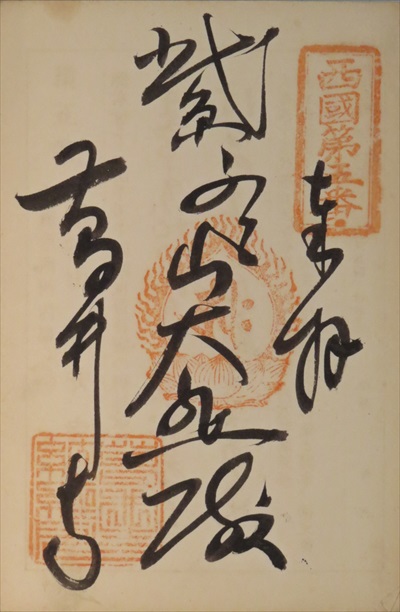 西國第五番
奉拝
紫雲山大悲殿
葛井寺